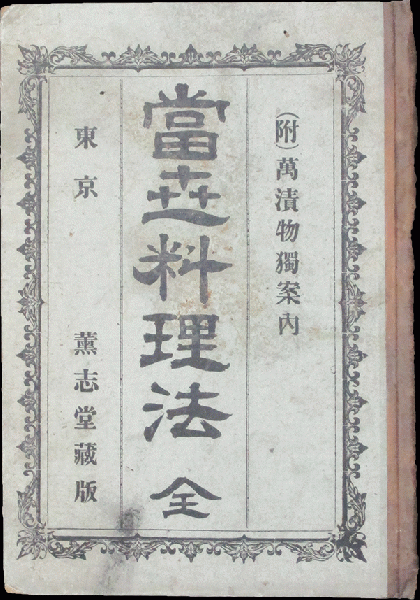 (附)萬漬物獨案內
當世料理法 全
東京 薰志堂藏版